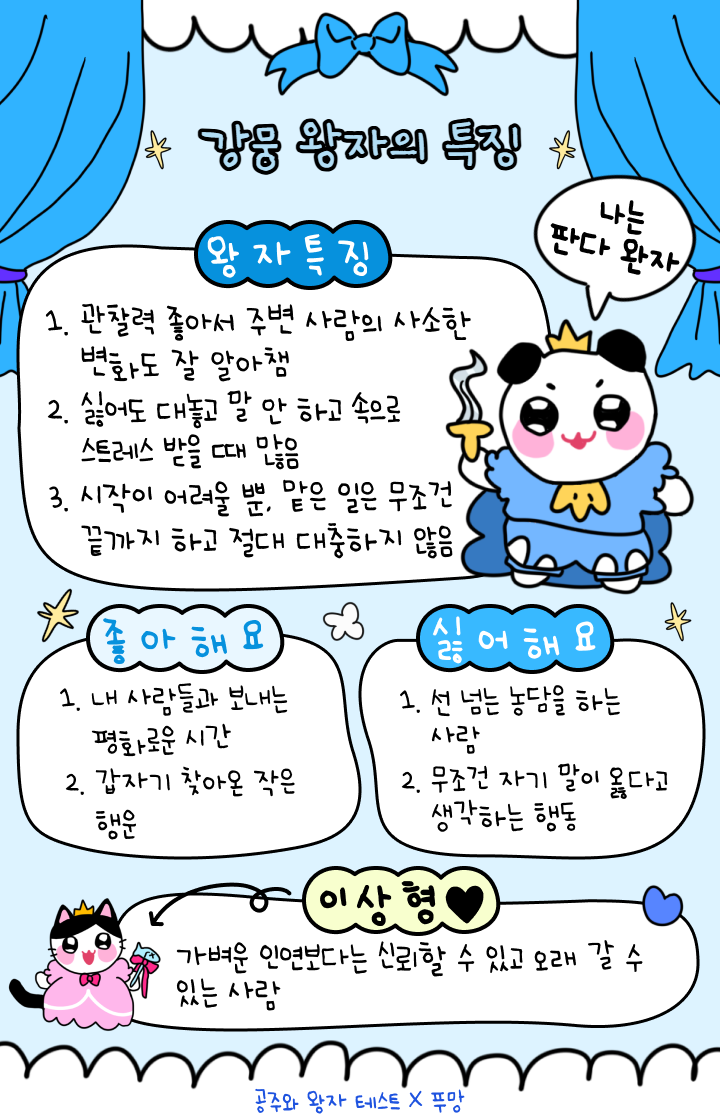 강뭉 왕자의 특징
나는
판다 완자
왕자특징
1. 관찰력 좋아서 주변 사람의 사소한
변화도 잘 알아챔
2. 싫어도 대놓고 말 안 하고 속으로
스트레스 받을 때 많음
3. 시작이 어려울 뿐, 맡은 일은 무조건
끝까지 하고 절대 대충하지 않음
좋아해요
1. 내 사람들과 보내는
평화로운 시간
2. 갑자기 찾아온 작은
행운
싫어해요
1. 선 넘는 농담을 하는
사람
2. 무조건 자기 말이 옳다고
생각하는 행동
이상형♥
가벼운 인연보다는 신뢰할 수 있고 오래 갈 수
있는 사람
공주와 왕자 테스트 X 푸망